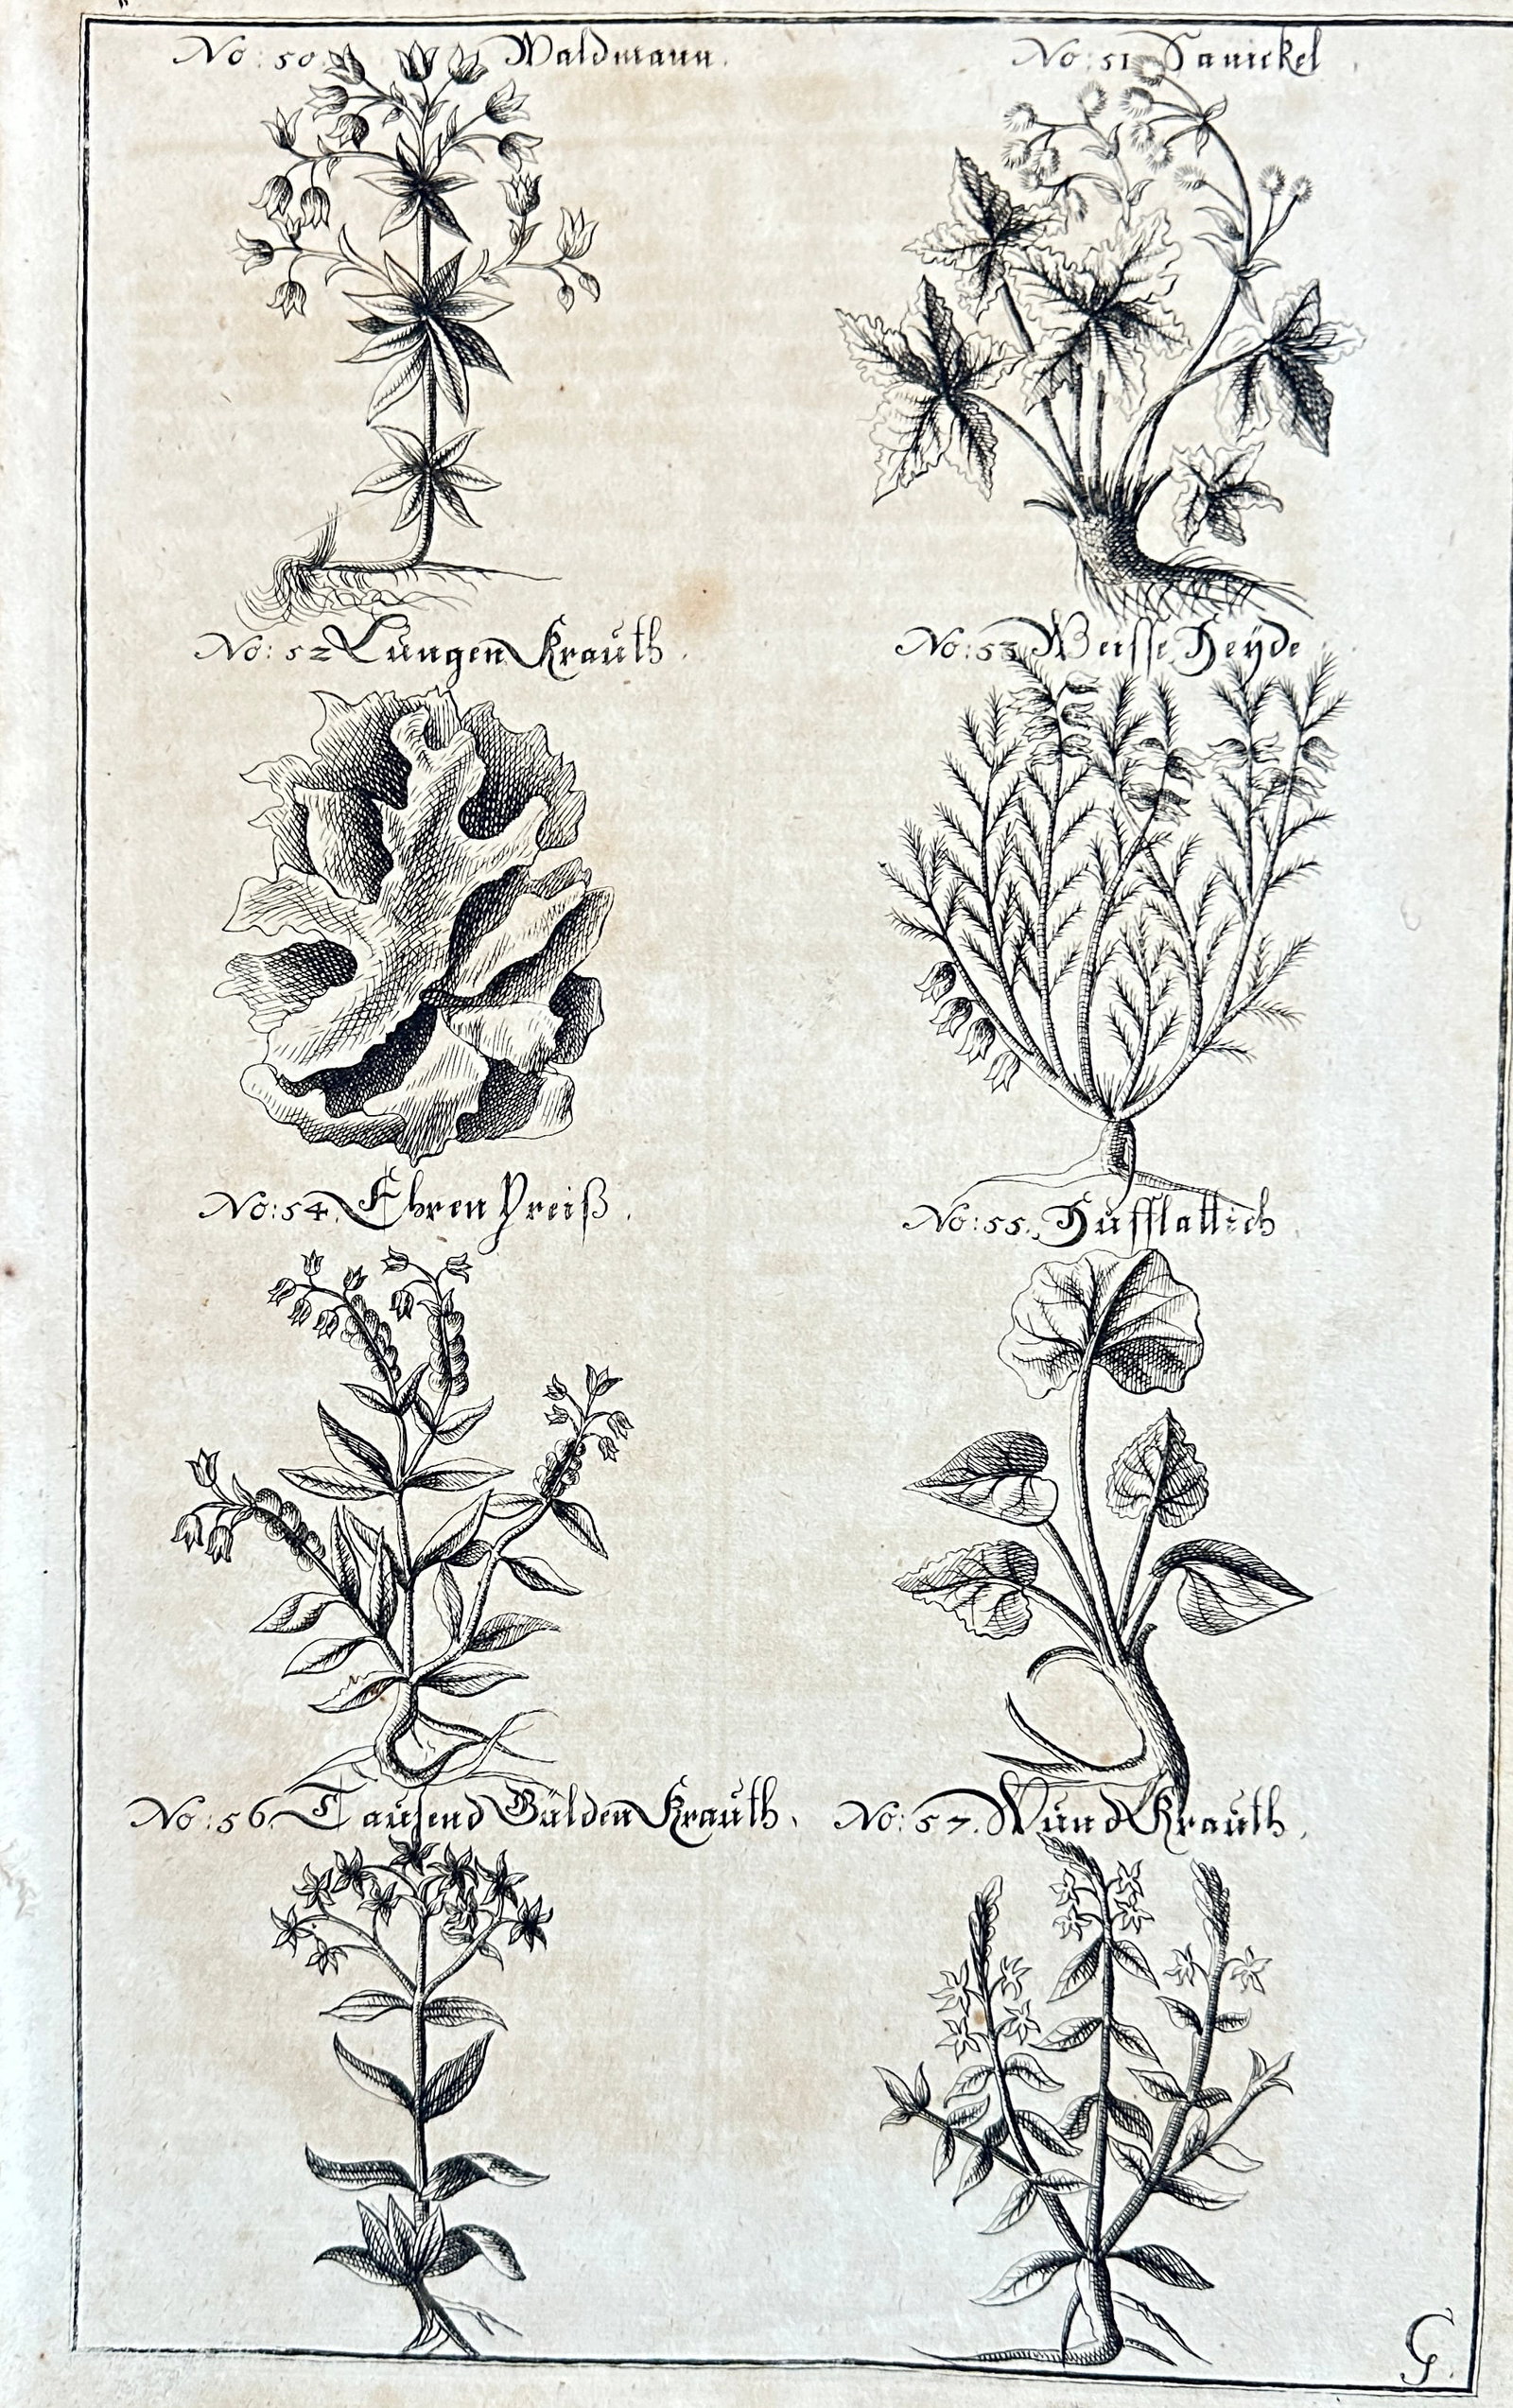 No: 50. Waldmann.
No: 51. Sanickel.
No: 52 Lungen Krauth.
No: 53 Weisse Heÿde
No: 54. Ehren Preiß.
No: 55. Hufflattich
No: 56. Tausend Gülden Krauth.
No: 57. Wund Krauth.
G.